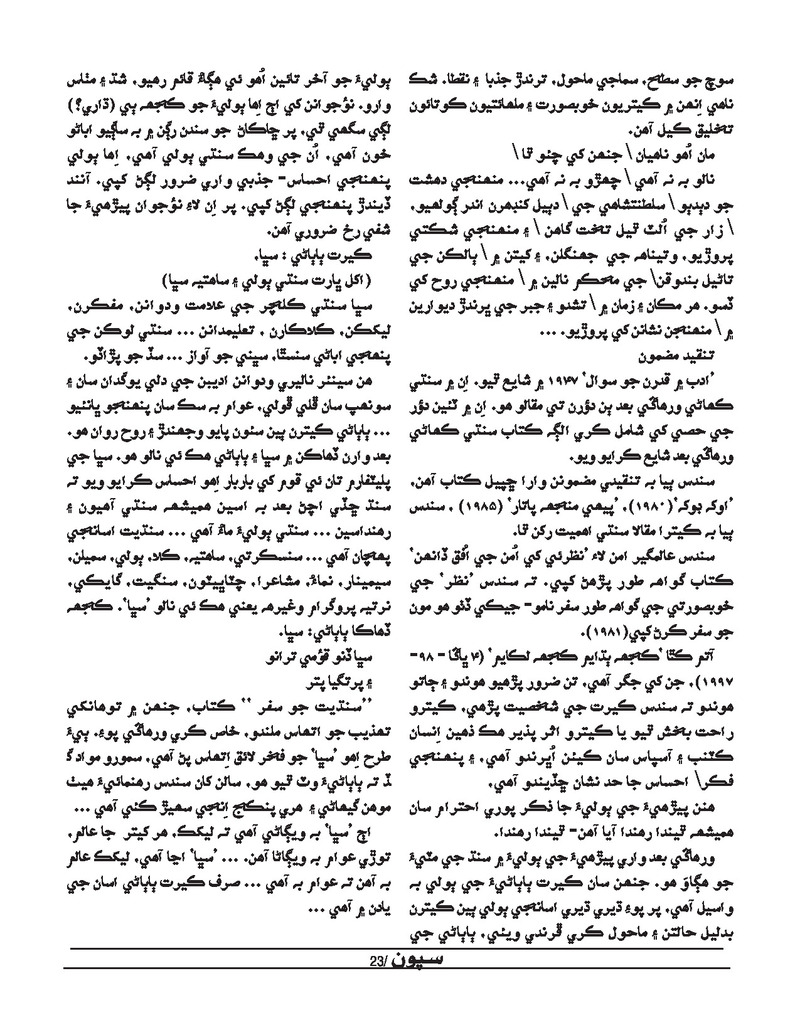 سوچ جو سطح، سماجي ماحول، ترندڙ جذبا ۽ نقطا. شڪ
ناهي اِنهن ۾ ڪيتريون خوبصورت ۽ ملهائتيون ڪوتائون
تخليق ڪيل آهن.
مان اُهو ناهيان \ جنهن کي چئو ٿا \
نالو به نه آهي \ چهڙو به نه آهي... منهنجي دهشت
جو دٻدٻو \ سلطنتشاهي جي \ دٻيل کنڊهرن اندر ڳولهيو.
\ زار جي اُلٽ ٿيل تخت گاهن \ ۽ منهنجي شڪتي
پروڙيو. وتينامه جي جهنگلن، ۽ کيتن ۾ \ ٻالڪن جي
تاڻيل بندوقن \ جي محڪم نالين ۾ \ منهنجي روح کي
ڏسو. هر مڪان ۽ زمان ۾ \ تشدو ۽ جبر جي ڀرندڙ ديوارين
۾ \ منهنجن نشانن کي پروڙيو. ...
تنقيد مضمون
’ادب ۾ قدرن جو سوال‘ ۱۹۴۷ ۾ شايع ٿيو. اِن ۾ سنڌي
ڪهاڻي ورهاڱي بعد ٻن دؤرن تي مقالو هو. اِن ۾ نئين دؤر
جي حصي کي شامل ڪري الڳ ڪتاب سنڌي ڪهاڻي
ورهاڱي بعد شايع ڪرايو ويو.
سندس ٻيا به تنقيدي مضمونن وارا ڇپيل ڪتاب آهن،
’اوکہ ٻوکہ‘(۱۹۸۰)، ’پيهي منجهہ پاتار‘ (۱۹۸۵) . سندس
ٻيا به ڪيترا مقالا سنڌي اهميت رکن ٿا.
سندس عالمگير امن لاءِ ’نظرئي کي اُمن جي اُفق ڏانهن‘
ڪتاب گواهہ طور پڙهڻ کپي. تہ سندس ’نظر‘ جي
خوبصورتي جي گواهہ طور سفر نامو- جيڪي ڏٺو هو مون
جو سفر ڪرڻ کپي(۱۹۸۱).
آتم ڪٿا ’ڪجهہ ٻڌايم ڪجهہ لڪايم‘ (۴ ڀاڱا - ۹۸-
۱۹۹۷)، جن کي جگر آهي، تن ضرور پڙهيو هوندو ۽ ڄاتو
هوندو تہ سندس ڪيرت جي شخصيت پڙهي، ڪيترو
راحت بخش ٿيو يا ڪيترو اثر پذير هڪ ذهين اِنسان
ڪٽنب ۽ آسپاس سان ڪيئن اُڀرندو آهي، ۽ پنهنجي
فڪر \ احساس جا حد نشان ڇڏيندو آهي.
هنن پيڙهيءَ جي ٻوليءَ جا ذڪر پوري احترام سان
هميشهہ ٿيندا رهندا آيا آهن- ٿيندا رهندا.
ورهاڱي بعد واري پيڙهيءَ جي ٻوليءَ ۾ سنڌ جي مٽيءَ
جو هڳاوَ هو. جنهن سان ڪيرت ٻاٻاڻيءَ جي ٻولي به
واسيل آهي، پر پوءِ ڏيري ڏيري اسانجي ٻولي ٻين ڪيترن
بدليل حالتن ۽ ماحول ڪري ڦرندي ويئي، ٻاٻاڻي جي
ٻوليءَ جو آخر تائين اُهو ئي هڳاءُ قائم رهيو، شڌ ۽ مٺاس
وارو. نوَجوانن کي اڄ اِها ٻوليءَ جو ڪجهہ ٻي (ڌاري؟)
لڳي سگهي ٿي، پر ڇاڪاڻ جو سندن رڳن ۾ به ساڳيو اباڻو
خون آهي، اُن جي وهڪ سنڌي ٻولي آهي، اِها ٻولي
پنهنجي احساس- جذبي واري ضرور لڳڻ کپي، آنند
ڏيندڙ پنهنجي لڳڻ کپي. پر اِن لاءِ نوَجوان پيڙهيءَ جا
شفي رخ ضروري آهن.
ڪيرت ٻاٻاڻي : سڀا.
(اکل ڀارت سنڌي ٻولي ۽ ساهتيہ سڀا)
سڀا سنڌي ڪلچر جي علامت ودوانن، مفڪرن،
ليکڪن، ڪلاڪارن ، تعليمدانن ... سنڌي لوڪن جي
پنهنجي اباڻي سنسٿا، سڀني جو آواز ... سڏ جو پڙاڏو.
هن سينئر ناليري ودوانن اديبن جي دلي يوگدان سان ۽
سونهپ سان ڦلي ڦولي، عوام به سڪ سان پنهنجو ڀانئيو
... ٻاٻاڻي ڪيترن ٻين سئون پايو وجهندڙ ۽ روح روان هو.
بعد وارن ڏهاڪن ۾ سڀا ۽ ٻاٻاڻي هڪ ئي نالو هو. سڀا جي
پليٽفارم تان ئي قوم کي باربار اِهو احساس ڪرايو ويو تہ
سنڌ ڇڏي اچڻ بعد به اسين هميشهہ سنڌي آهيون ۽
رهنداسين ... سنڌي ٻوليءَ ماءُ آهي ... سنڌيت اسانجي
پهچان آهي ... سنسڪرتي، ساهتيہ، ڪلا، ٻولي، سميلن،
سيمينار، نماءُ، مشاعرا، چٽاڀيٽون، سنگيت، گايڪي،
نرتيہ پروگرام وغيرهہ يعني هڪ ئي نالو ’سڀا‘. ڪجهہ
ڏهاڪا ٻاٻاڻي: سڀا.
سڀا ڏنو قؤمي ترانو
۽ پرتگيا پتر
’’سنڌيت جو سفر ‘‘ ڪتاب، جنهن ۾ توهانکي
تهذيب جو اتهاس ملندو، خاص ڪري ورهاڱي پوءِ، ٻيءَ
طرح اِهو ’سڀا‘ جو فخر لائق اِتهاس پڻ آهي، سمورو مواد گ
ڏ تہ ٻاٻاڻيءَ وٽ ٿيو هو، سالن کان سندس رهنمائيءَ هيٺ
موهن گيهاڻي ۽ هري پنڪج اِنجي سهيڙ ڪئي آهي ...
اڄ ’سڀا‘ به ويڳاڻي آهي تہ ليکڪ، هر کيتر جا عالم،
توڙي عوام به ويڳاڻا آهن. ... ’سڀا‘ اڃا آهي، ليکڪ عالم
به آهن تہ عوام به آهي ... صرف ڪيرت ٻاٻاڻي اسان جي
يادن ۾ آهي ...
سپون /23